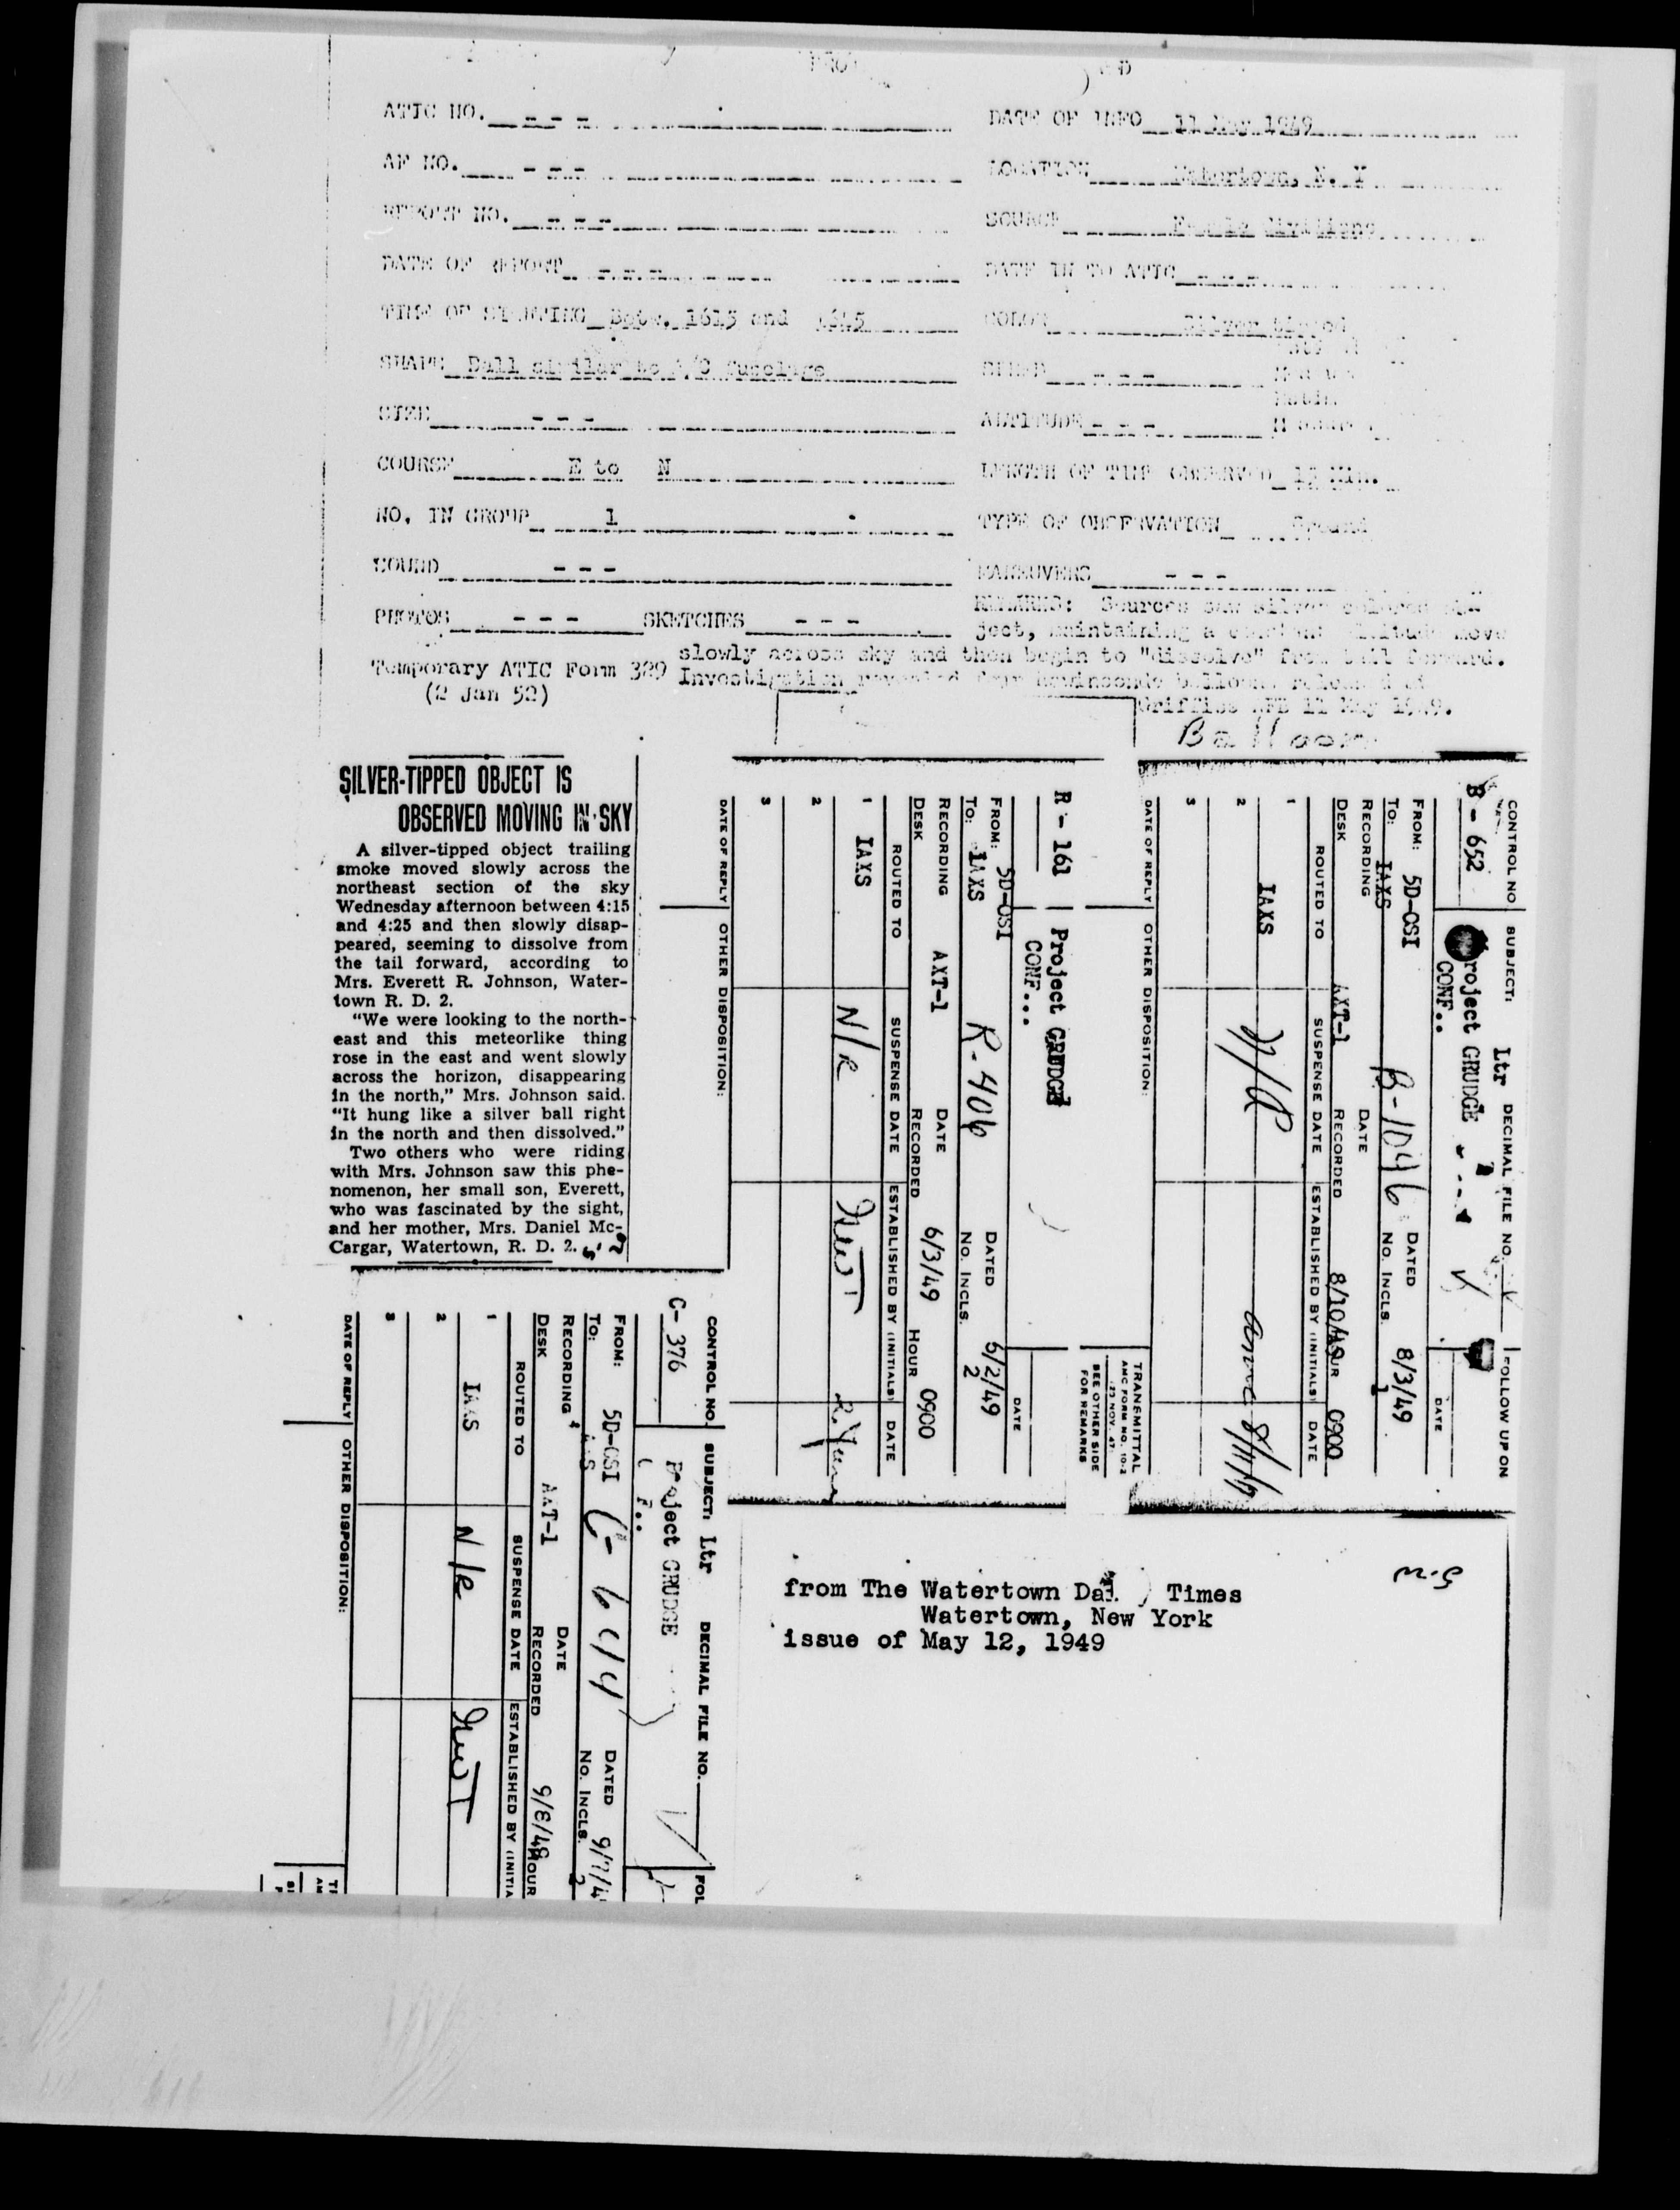 ATIC NO. - - -
DATE OF INFO 11 May 1949
AF NO. - - -
LOCATION Watertown, N. Y
REPORT NO. - - -
SOURCE Female civilians
DATE OF REPORT - - -
DATE IN TO ATIC - - -
TIME OF SIGHTING Betw. 1615 and 1645
COLOR Silver tipped
SHAPE Ball similar to A/C fuselage
SPEED - - -
SIZE - - -
ALTITUDE - - -
COURSE E to N
LENGTH OF TIME OBSERVED Min.
NO. IN GROUP 1
TYPE OF OBSERVATION Ground
SOUND - - -
MANEUVERS - - -
PHOTOS - - - SKETCHES - - -
REMARKS: Sources saw silver colored ob-
ject, maintaining a constant altitude move
slowly across sky and then begin to "dissolve" from tail forward.
Investigation revealed four Rawinsonde balloons released at
Griffiss AFB 11 May 1949.
Temporary ATIC Form 329
(2 Jan 52)
Balloon
SILVER-TIPPED OBJECT IS
OBSERVED MOVING IN SKY
A silver-tipped object trailing
smoke moved slowly across the
northeast section of the sky
Wednesday afternoon between 4:15
and 4:25 and then slowly disap-
peared, seeming to dissolve from
the tail forward, according to
Mrs. Everett R. Johnson, Water-
town R. D. 2.
"We were looking to the north-
east and this meteorlike thing
rose in the east and went slowly
across the horizon, disappearing
in the north," Mrs. Johnson said.
"It hung like a silver ball right
in the north and then dissolved."
Two others who were riding
with Mrs. Johnson saw this phe-
nomenon, her small son, Everett,
who was fascinated by the sight,
and her mother, Mrs. Daniel Mc-
Cargar, Watertown, R. D. 2.
R - 161 Project GRUDGE
CONF...
DATE
FROM: 5D-OSI R-406 DATED 6/2/49
TO: IAXS NO. INCLS. 2
RECORDING DESK AXT-1 DATE RECORDED 6/3/49 HOUR 0900
ROUTED TO SUSPENSE DATE ESTABLISHED BY (INITIALS) DATE
1 IAXS N/R
2
3
DATE OF REPLY OTHER DISPOSITION:
CONTROL NO SUBJECT: Ltr DECIMAL FILE NO. FOLLOW UP ON
B - 652 Project GRUDGE
CONF..
DATE
FROM: 5D-OSI B-1046 DATED 8/3/49
TO: IAXS NO. INCLS. 1
RECORDING DESK AXT-1 DATE RECORDED 8/10/49 HOUR 0900
ROUTED TO SUSPENSE DATE ESTABLISHED BY (INITIALS) DATE
1 IAXS N/R
2
3
DATE OF REPLY OTHER DISPOSITION:
TRANSMITTAL
AMC FORM NO. 10-2
(23 NOV. 47)
SEE OTHER SIDE
FOR REMARKS
CONTROL NO. SUBJECT: Ltr DECIMAL FILE NO. FOL
C- 376 Project GRUDGE
FROM: 5D-OSI C-614 DATED 9/7/4
TO: NO. INCLS. 2
RECORDING DESK AXT-1 DATE RECORDED 9/8/49 HOUR
ROUTED TO SUSPENSE DATE ESTABLISHED BY (INITIA
1 IAXS N/R
2
3
DATE OF REPLY OTHER DISPOSITION:
from The Watertown Times
Watertown, New York
issue of May 12, 1949